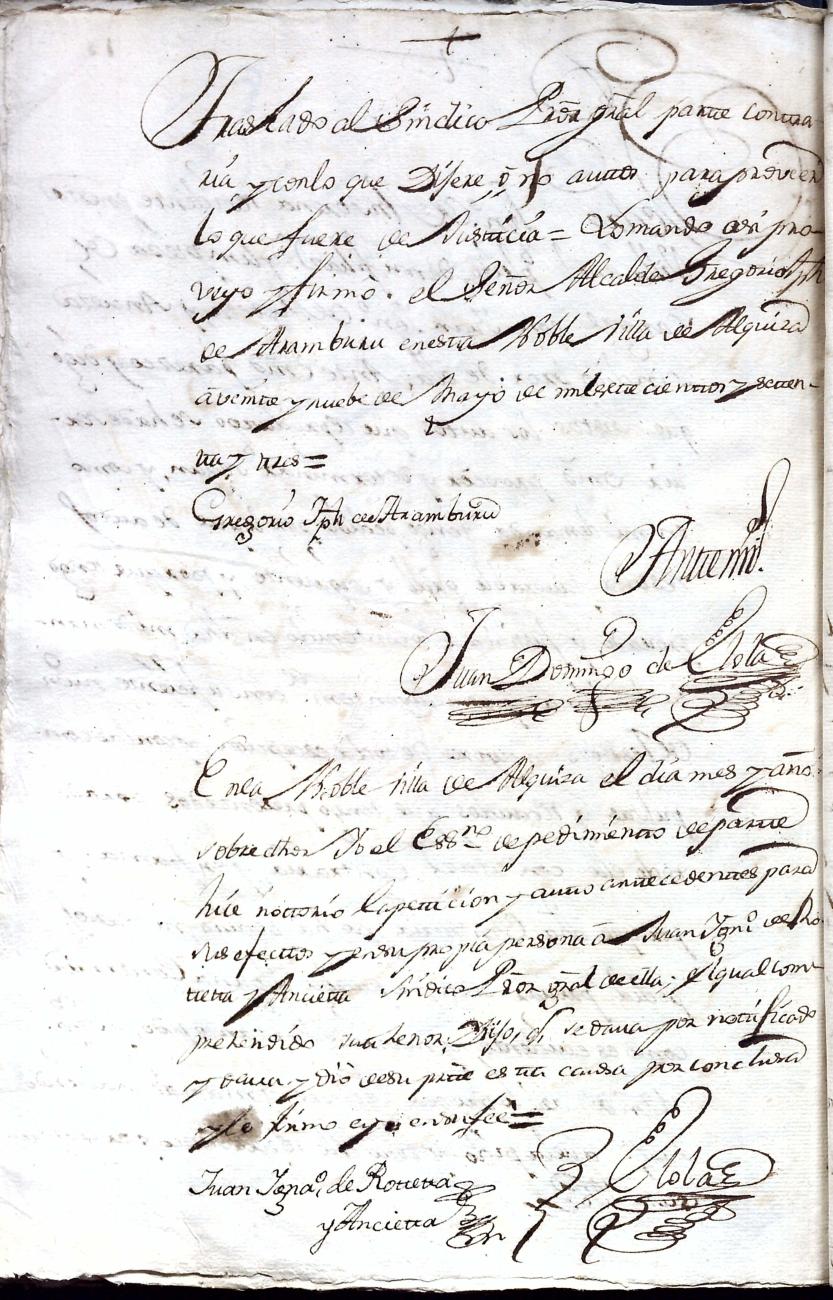 Traslado al Sindico Pror gral parte contra
ria y conlo que Dijere, ô no auttos para proveer
lo que fuere de Justicia = Lomando así pro-
veyo y firmó el Señor Alcalde Gregorio Jph
de Aramburu enesta Noble Villa de Alquiza
a veinte y nuebe de Mayo de mil sette cienttos y setten-
tta y tres =
Gregorio Jph de Aramburu
Antemi
Juan Domingo de Elola
Enla Noble Villa de Alquiza el dia mes y año
sobre dhos Yo el Essno de pedimiento de parte
hice nottorio la petticion y autto antecedentes para
sus efecttos y ensu propia persona â Juan Ygno de Ro-
tietta y Ancietta Sindico Pror gral de ella, el qual com-
prehendido su thenor, Dijo, q se dava por nottificado
y dava y dió desu parte estta causa por conclusa
y lo firmo e yo en su fee =
Juan Ygnao de Rotietta
y Ancietta
Elola